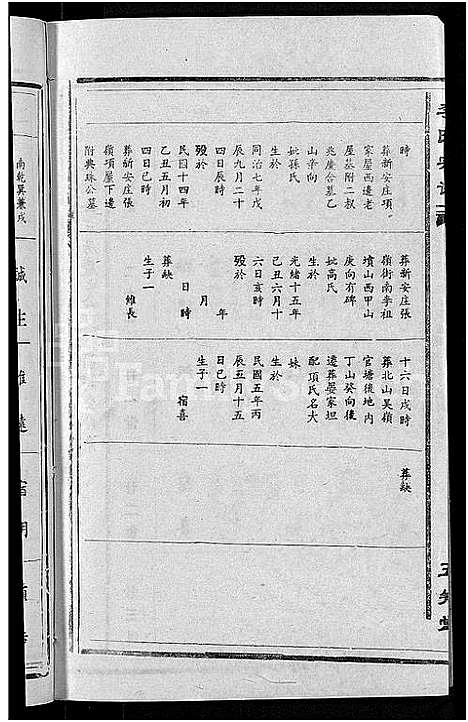 時
葬新安庄項
家屋西邊老
屋基附二叔
兆慶合墓乙
山辛向
妣孫氏
同治七年戊
辰九月二十
四日辰時
歿於
民國十四年
乙丑五月初
四日巳時
葬新安庄張
嶺項屋下邊
附典珠公墓
葬新安庄張
嶺街南李祖
墳山西甲山
庚向有碑
妣高氏
生於
光緒十五年
己丑六月十
六日亥時
歿於
年
月
日 時
葬缺
生子一
維長
十六日戌時
葬北山吴嶺
官塘後地內
丁山癸向後
遷葬晏家坦
配項氏名大
妹
生於
民國五年丙
辰五月十五
日巳時
生子一
宿喜
葬缺
南乾巽兼戌
五知堂